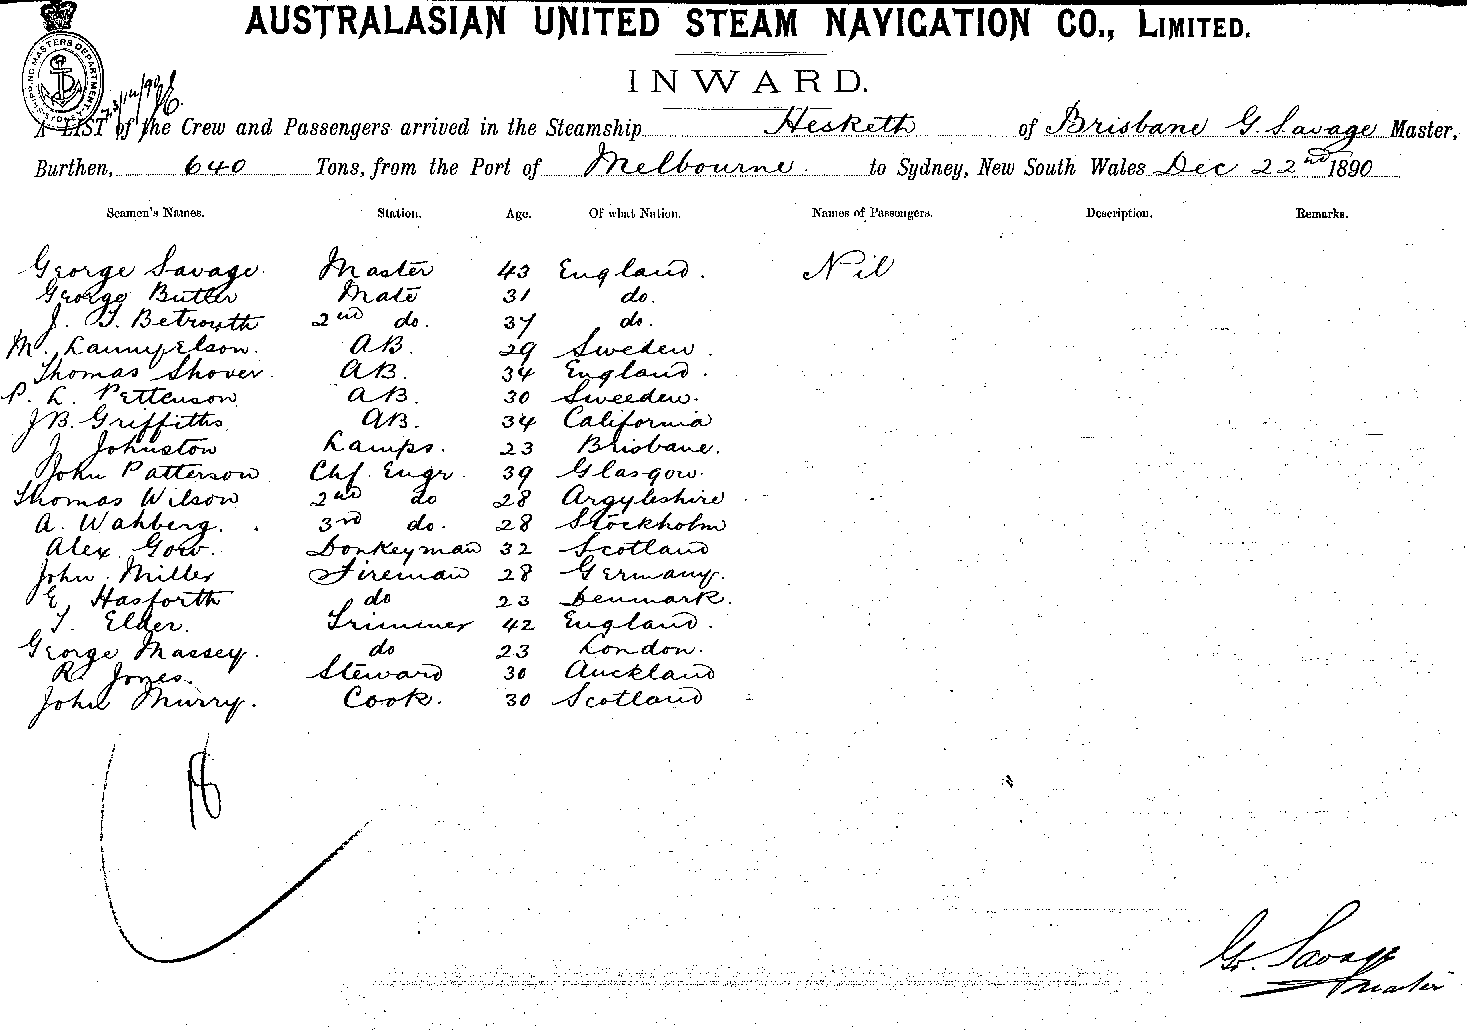 AUSTRALASIAN UNITED STEAM NAVIGATION CO., LIMITED.
INWARD.
SHIPPING MASTERS DEPARTMENT
A LIST of the Crew and Passengers arrived in the Steamship Hesketh of Brisbane G. Savage Master,
Burthen, 640 Tons, from the Port of Melbourne to Sydney, New South Wales Dec 22nd 1890
Seamen's Names. Station. Age. Of what Nation. Names of Passengers. Description. Remarks.
George Savage Master 43 England. Nil
George Butler Mate 31 do.
J. Betrowth 2nd do. 37 do.
M. AB. 29 Sweden.
Thomas Shover AB. 34 England.
P. L. Pettenson AB. 30 Sweeden.
JB. Griffiths AB. 34 California
J. Johnston Lamps. 23 Brisbane.
John Patterson Chf. Engr. 39 Glasgow.
Thomas Wilson 2nd do 28 Argyleshire
A. Wahberg. 3rd do. 28 Stockholm
Alex. Gow. Donkeyman 32 Scotland
John Miller Fireman 28 Germany.
E. Hasforth do 23 Denmark.
T. Elder. Trimmer 42 England.
George Massey. do 23 London.
R. Jones. Steward 30 Auckland
John Murry. Cook. 30 Scotland
G. Savage
Master